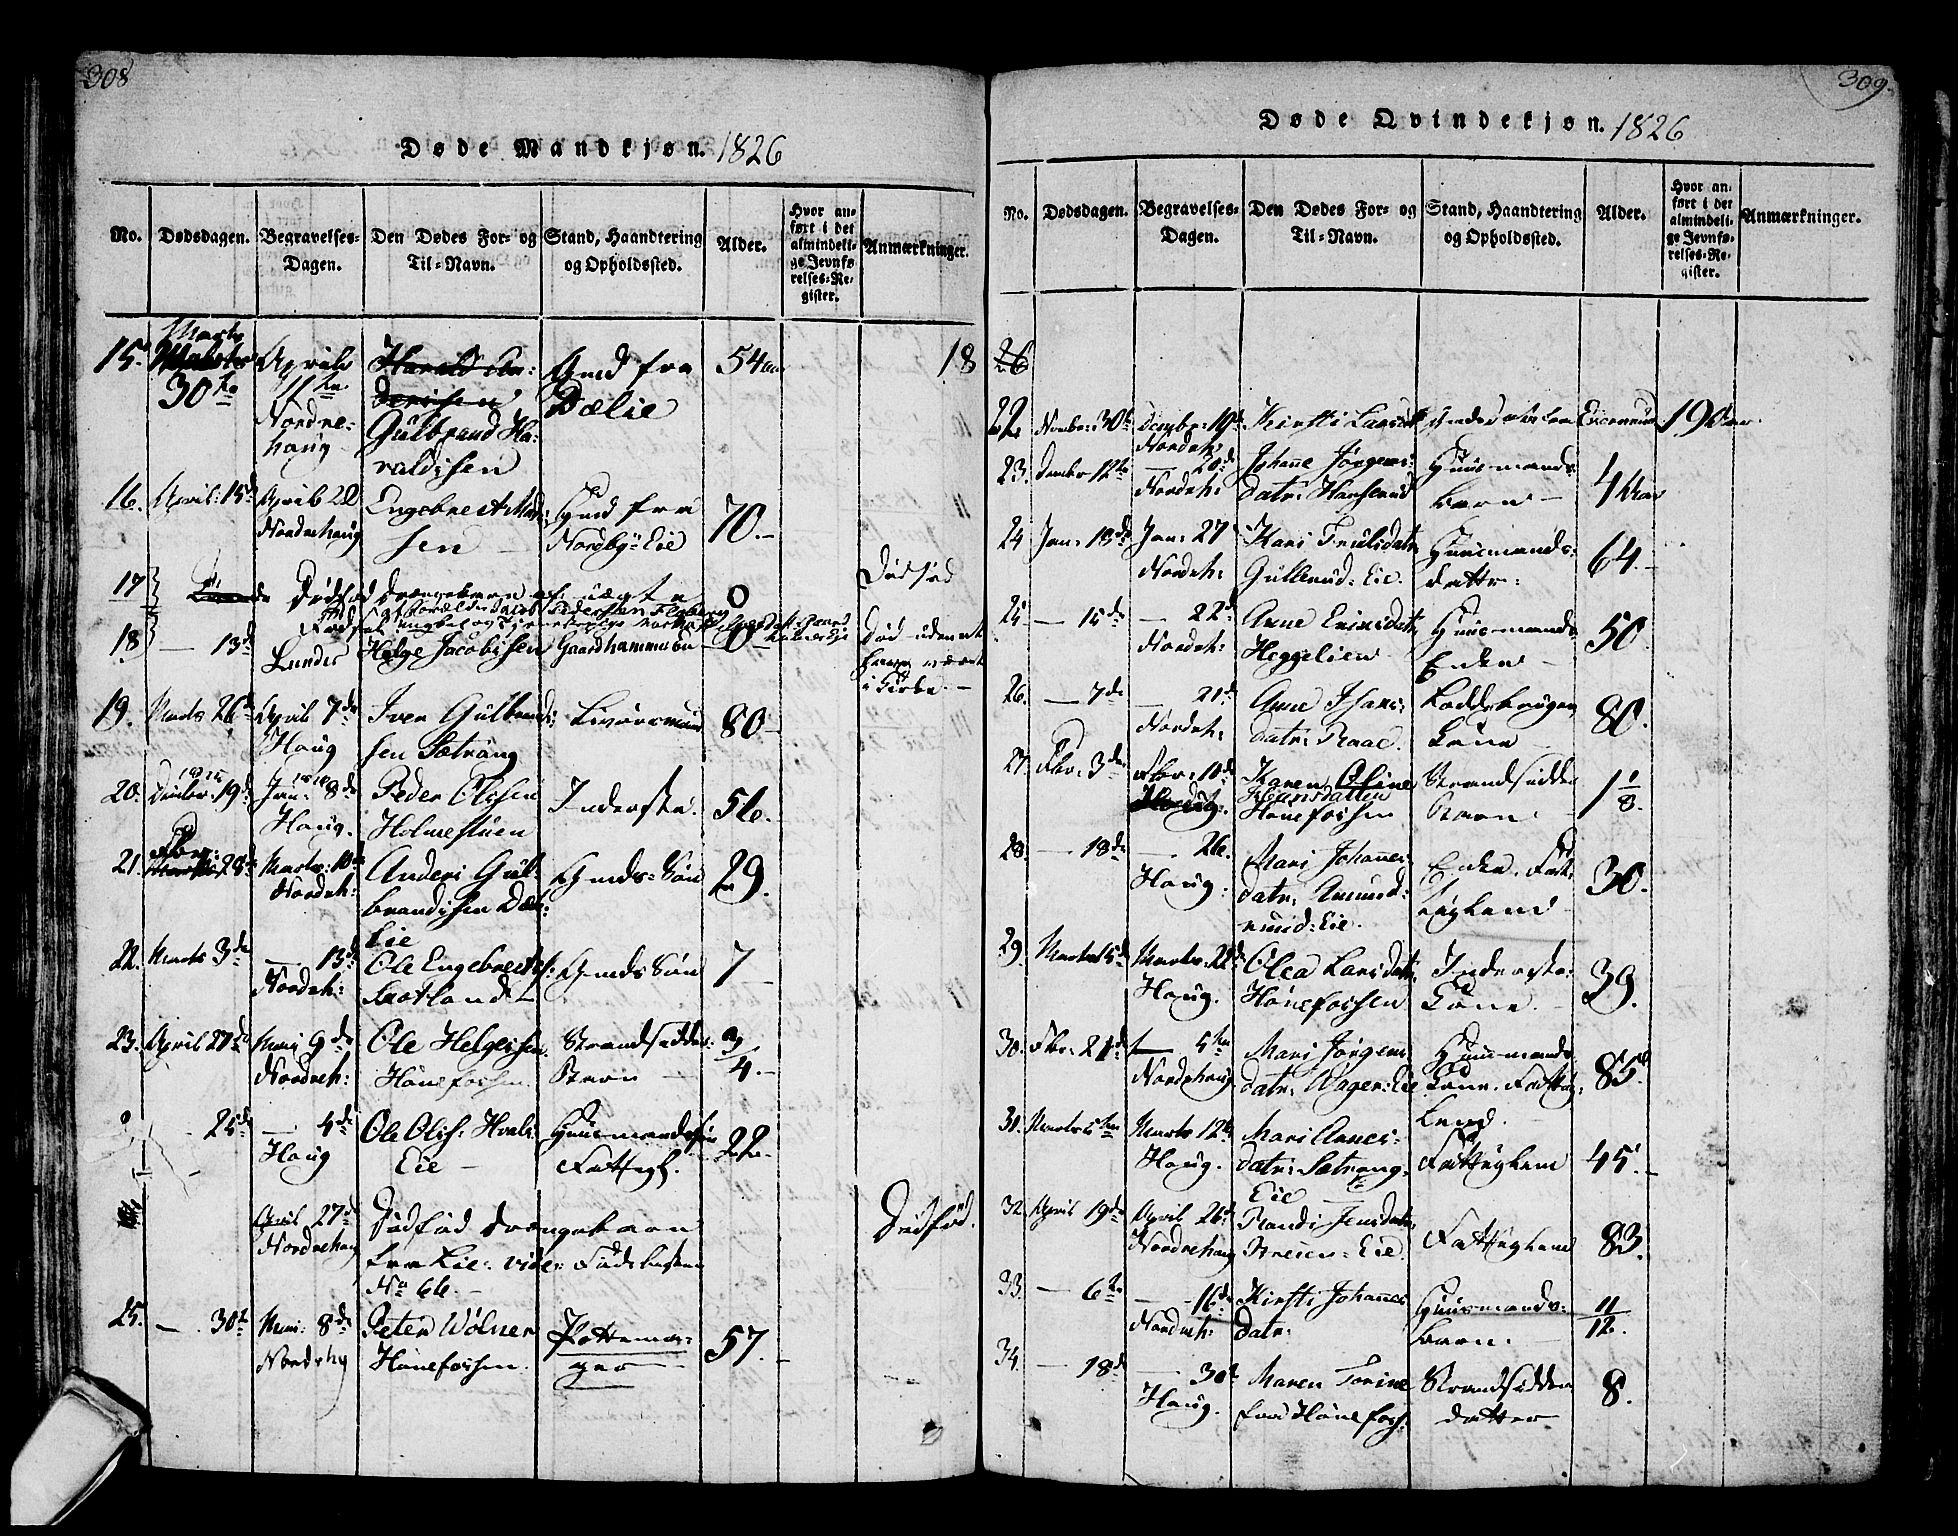 308
Døde Mandkjøn. 1826
No.
Dødsdagen.
Begravelses-
Dagen.
Den Dødes For- og
Til-Navn.
Stand, Haandtering
og Opholdssted.
Alder.
Hvor an-
ført i det
almindeli-
ge Jevnfø-
relses-Re-
gister.
Anmærkninger.
15. Marts 30te
Aprile 11te
Nordre-
haug
Harald An-
dersen
Gulbrand Ha-
raldsen
Gmd fra
Dælie
54 aar
18
16. April: 15de
Aprile 22
Nordrehaug
Engebret
sen
Gmd fra
Nordby-Eie
70.
17
Dødfød Drengebarn af uægte
0
Dødfød
18 — 13de
Lunder
Helge Jacobsen
Gaardhammeren
0
Død uden at
have været
i Kirke.
19. Marts 26de
April 7de
Haug
Iver Gulbrand-
sen Sætrang
Livøresmand
80
20. Decbr: 19de
Jan: 8de
Haug.
Peder Olsen
Holmestuen
Inderste.
56.
21. Fbr: 28de
Marts: 10de
Nordeh:
Anders Gul-
brandsen Dæl-
Eie
Gmds-Søn
29.
22. Marts 3de
— 13de
Nordeh:
Ole Engebretss:
Gmds Søn
7
23. April 27de
Mai 9de
Nordreh:
Ole Helgessen
Hønefossen
Strandsidder-
Barn
9/4.
25de
— 4de
Haug
Ole Olss: Hval-
Eie
Huusmandssøn
Fattigl.
22
April 27de
Nordrehaug
Dødfød Drengebarn
fra Lie: vide: Fødselslisten
No 66.
Dødfød.
25. — 30te
Mai: 8de
Nordrehg
Peter Wølner
Hønefossen.
Pottema-
ger
57.
309.
Døde Qvindekjøn. 1826
No.
Dødsdagen.
Begravelses-
Dagen.
Den Dødes For- og
Til-Navn.
Stand, Haandtering
og Opholdssted.
Alder.
Hvor an-
ført i det
almindeli-
ge Jevnfø-
relses-Re-
gister.
Anmærkninger.
26
22 Novbr: 30te
Decembr: 10de
Nordeh:
Kirsti Larsdt
19 aar
23. Decembr 12te
— 20de
Nordeh:
Johanne Jørgens-
datr: Hanserud
Huusmands-
barn
4 Uger
24 Jan: 18de
Jan: 27
Nordeh:
Kari Truls datr
Gullerud-Eie.
Huusmands-
datter:
64.
25 — 15de
— 22de
Nordeh:
Anne Eriksdatr
Heggelien
Huusmands
Enke
50
26. — 7de
— 21de
Nordeh:
Anne Hans-
datr: Raae.
Lodsbruger
Kone
80.
27. Fbr: 3de
Fbr: 10de
Haug:
Karen Oline
Hansdatter
Hønefossen
Strandsidder
Barn.
1 1/8.
28. — 18de
— 26.
Haug:
Mari Johannes-
datr: Amund-
rud-Eie.
Enke. Fat-
tiglem
30.
29. Marts 15de
Marts: 22de
Haug.
Olea Larsdatr
Hønefossen
Inderste-
Kone.
39.
30. Fbr: 21de
— 5te
Nordrehaug
Mari Jørgens
datr: Wager-Eie
Huusmands-
Kone. Fattig-
Lem.
85.
31. Marts 5te
Marts 12te
Haug.
Mari Annes-
datr: Sætrang-
Eie
Fattiglem
45
32. April 19de
April 26de
Nordrehaug
Randi Jensdatr
-Eie.
Fattiglem
83.
33. — 6te
— 16de
Nordreh:
Kirsti Johannes
datr:
Huusmands-
barn.
11/12.
34. — 18de
— 30te
Haug.
Maren Torine
fra Hønefoss:
Strandsidder
datter
8.